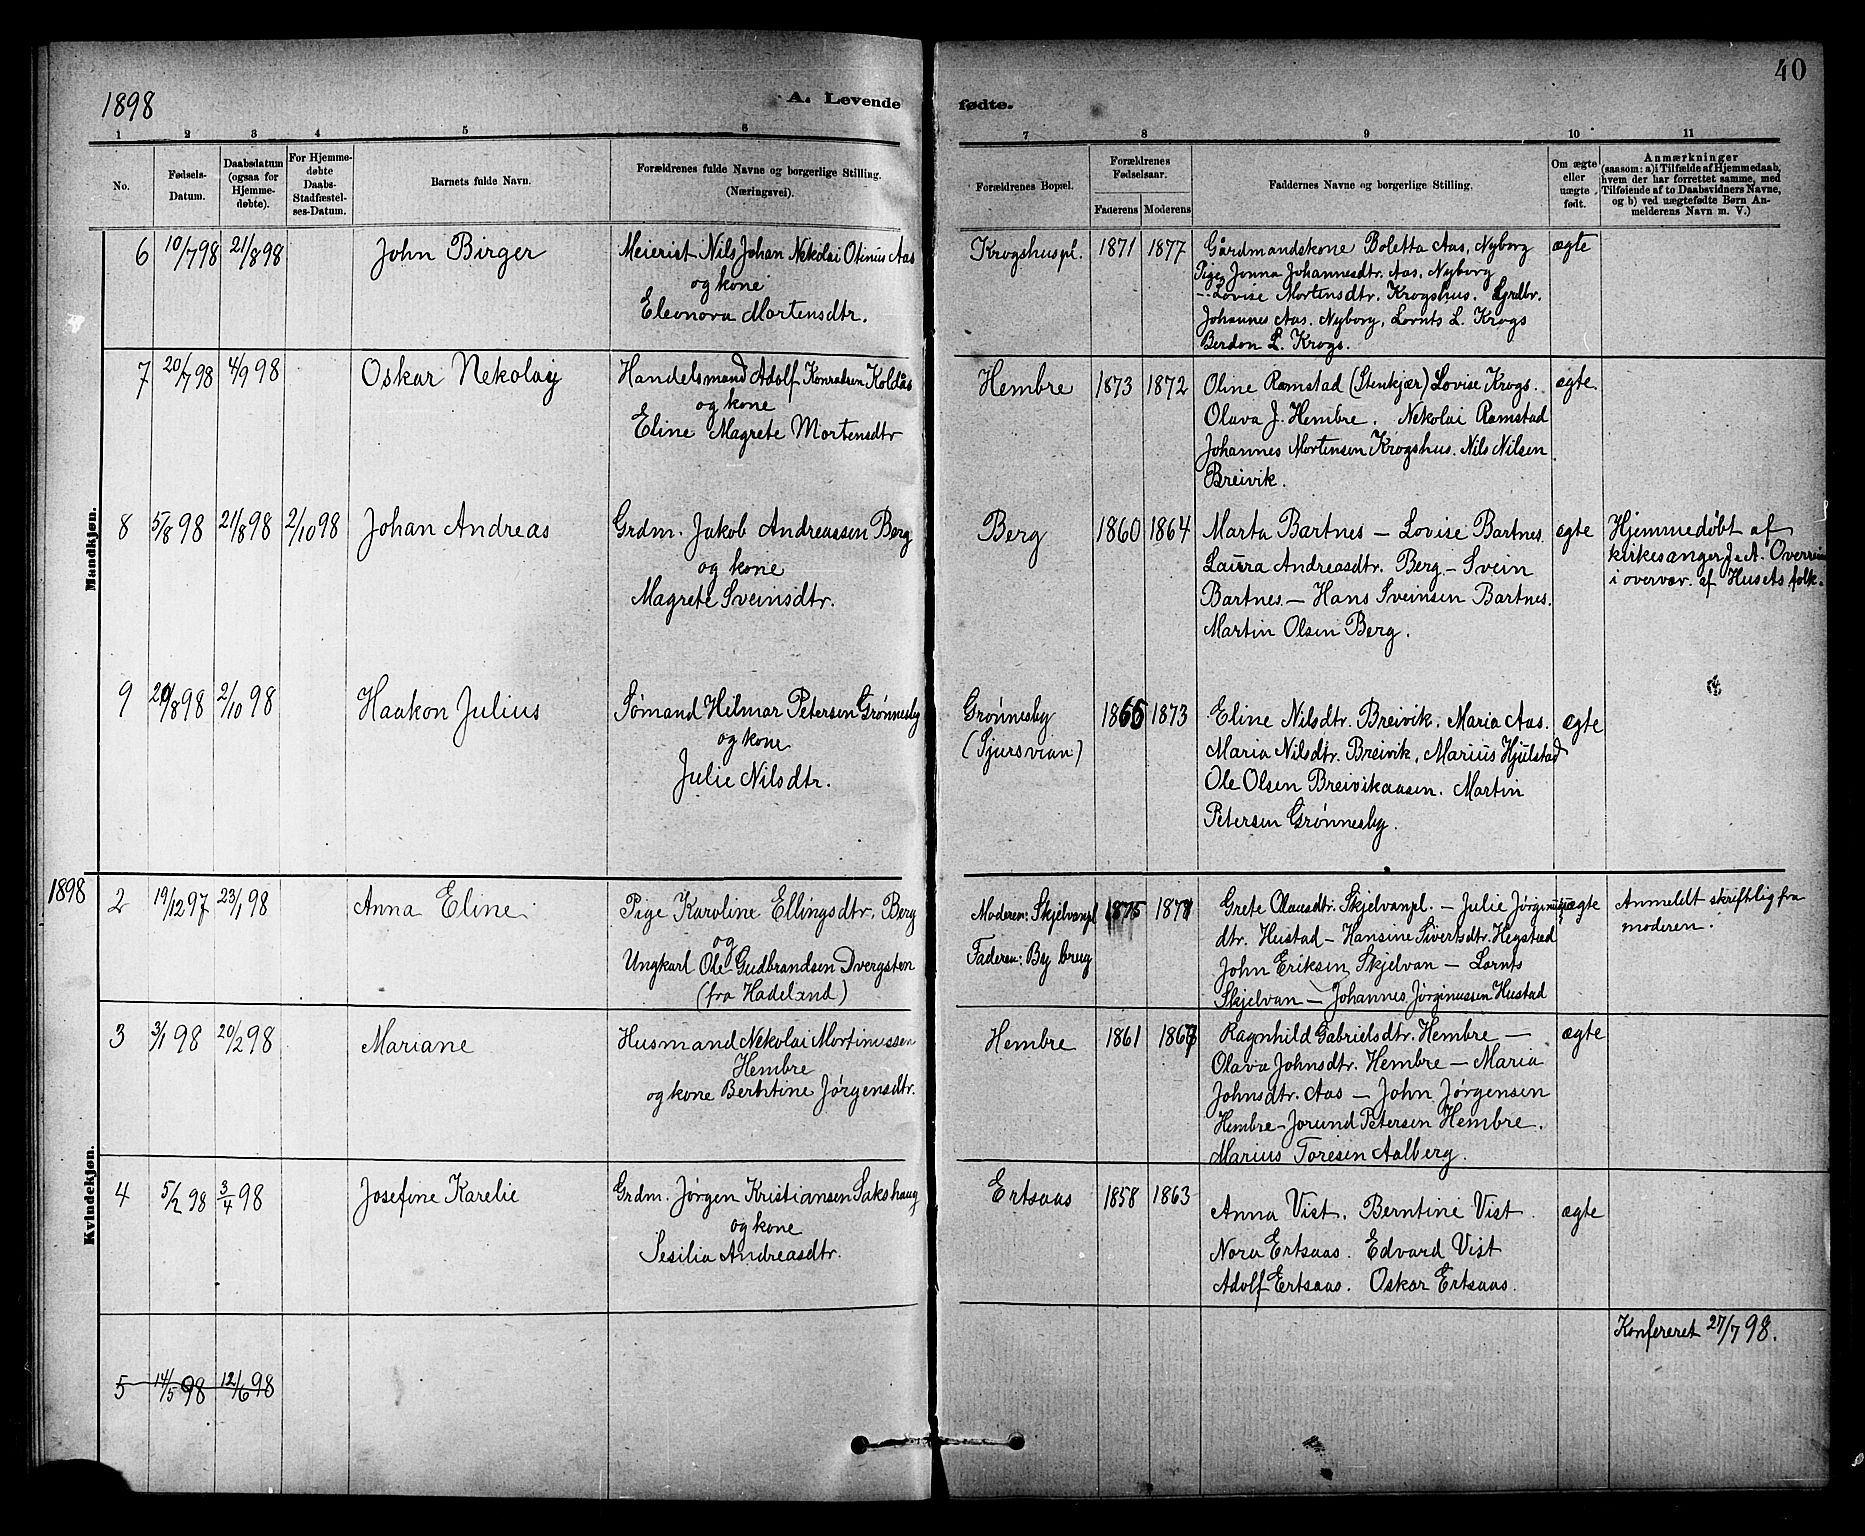 40
1898
A. Levende fødte.
1 2 3 4 5 6 7 8 9 10 11
No.
Fødsels-
Datum.
Daabsdatum
(ogsaa for
Hjemme-
døbte).
For Hjemme-
døbte
Daabs-
Stadfæstel-
ses-Datum.
Barnets fulde Navn.
Forældrenes fulde Navne og borgerlige Stilling.
(Næringsvei).
Forældrenes Bopæl.
Forældrenes
Fødselsaar.
Faderens Moderens
Faddernes Navne og borgerlige Stilling.
Om ægte
eller
uægte
født.
Anmærkninger
(saasom: a) i Tilfælde af Hjemmedaab,
hvem der har forrettet samme, med
Tilføiende af to Daabsvidners Navne,
og b) ved uægtefødte Børn An-
melderens Navn m. V.)
Mandkjøn.
6 10/7 98 21/8 98 John Birger
Meierist Nils Johan Nekolai Otinus Aas
og kone
Eleonora Mortensdtr.
Krogshuspl. 1871 1877
Gårdmandskone Boletta Aas, Nyborg
Pige Jonna Johannesdtr. Aas, Nyborg
– Lovise Mortensdtr. Krogshus. Gårdbr.
Johannes Aas, Nyborg, Lornts L. Krogs
Berdon L. Krogs.
ægte
7 20/7 98 4/9 98 Oskar Nekolay
Handelsmand Adolf Konradsen Koldås
og kone
Eline Magrete Mortensdtr
Hembre 1873 1872
Oline Ramstad (Stenkjær) Lovise Krogs.
Olava J. Hembre. Nekolai Ramstad
Johannes Mortensen Krogshus. Nils Nilsen
Breivik.
ægte.
8 5/8 98 21/8 98 2/10 98 Johan Andreas
Grdm. Jakob Andreassen Berg
og kone
Magrete Sveinsdtr.
Berg 1860 1864
Marta Bartnes – Lovise Bartnes
Laura Andreasdtr. Berg – Svein
Bartnes – Hans Sveinsen Bartnes.
Martin Olsen Berg.
ægte
Hjemmedøbt af
kirkesanger J. A. Overrein
i overvær. af Husets folk.
9 20/8 98 2/10 98 Haakon Julius
Sømand Hilmar Petersen Grønnesby
og kone
Julie Nilsdtr.
Grønnesby
(Sjursvian)
1866 1873
Eline Nilsdtr. Breivik. Maria Aas.
Maria Nilsdtr. Breivik, Marius Hjulstad
Ole Olsen Breivikaasen. Martin
Petersen Grønnesby.
ægte
1898
Kvindekjøn.
2 19/12 97 23/1 98 Anna Eline
Pige Karoline Ellingsdtr. Berg
og
Ungkarl Ole Gudbrandsen Dvergsten
(fra Hadeland)
Moderen: Skjelvanpl
Faderen: By brug
1875 1871
Grete Olausdtr. Skjelvanpl. – Julie Jørginus-
dtr. Hustad – Hansine Sivertsdtr. Hegstad
John Eriksen Skjelvan – Lornts
Skjelvan – Johannes Jørginussen Hustad
uægte
Anmeldt skriftlig fra
moderen.
3 3/1 98 20/2 98 Mariane
Husmand Nekolai Mortinussen
Hembre
og kone Berntine Jørgensdtr.
Hembre 1861 1867
Ragnhild Gabrielsdtr. Hembre –
Olava Johnsdtr. Hembre – Maria
Johnsdtr. Aas – John Jørgensen
Hembre – Jorund Petersen Hembre.
Marius Toresen Aalberg.
ægte
4 5/2 98 3/4 98 Josefine Karelie
Grdm. Jørgen Kristiansen Sakshaug
og kone
Sesilia Andreasdtr.
Ertsaas 1858 1863
Anna Vist. Berntine Vist.
Nora Ertsaas. Edvard Vist
Adolf Ertsaas. Oskar Ertsaas.
ægte
Konfereret 27/7 98.
5 14/5 98 12/6 98